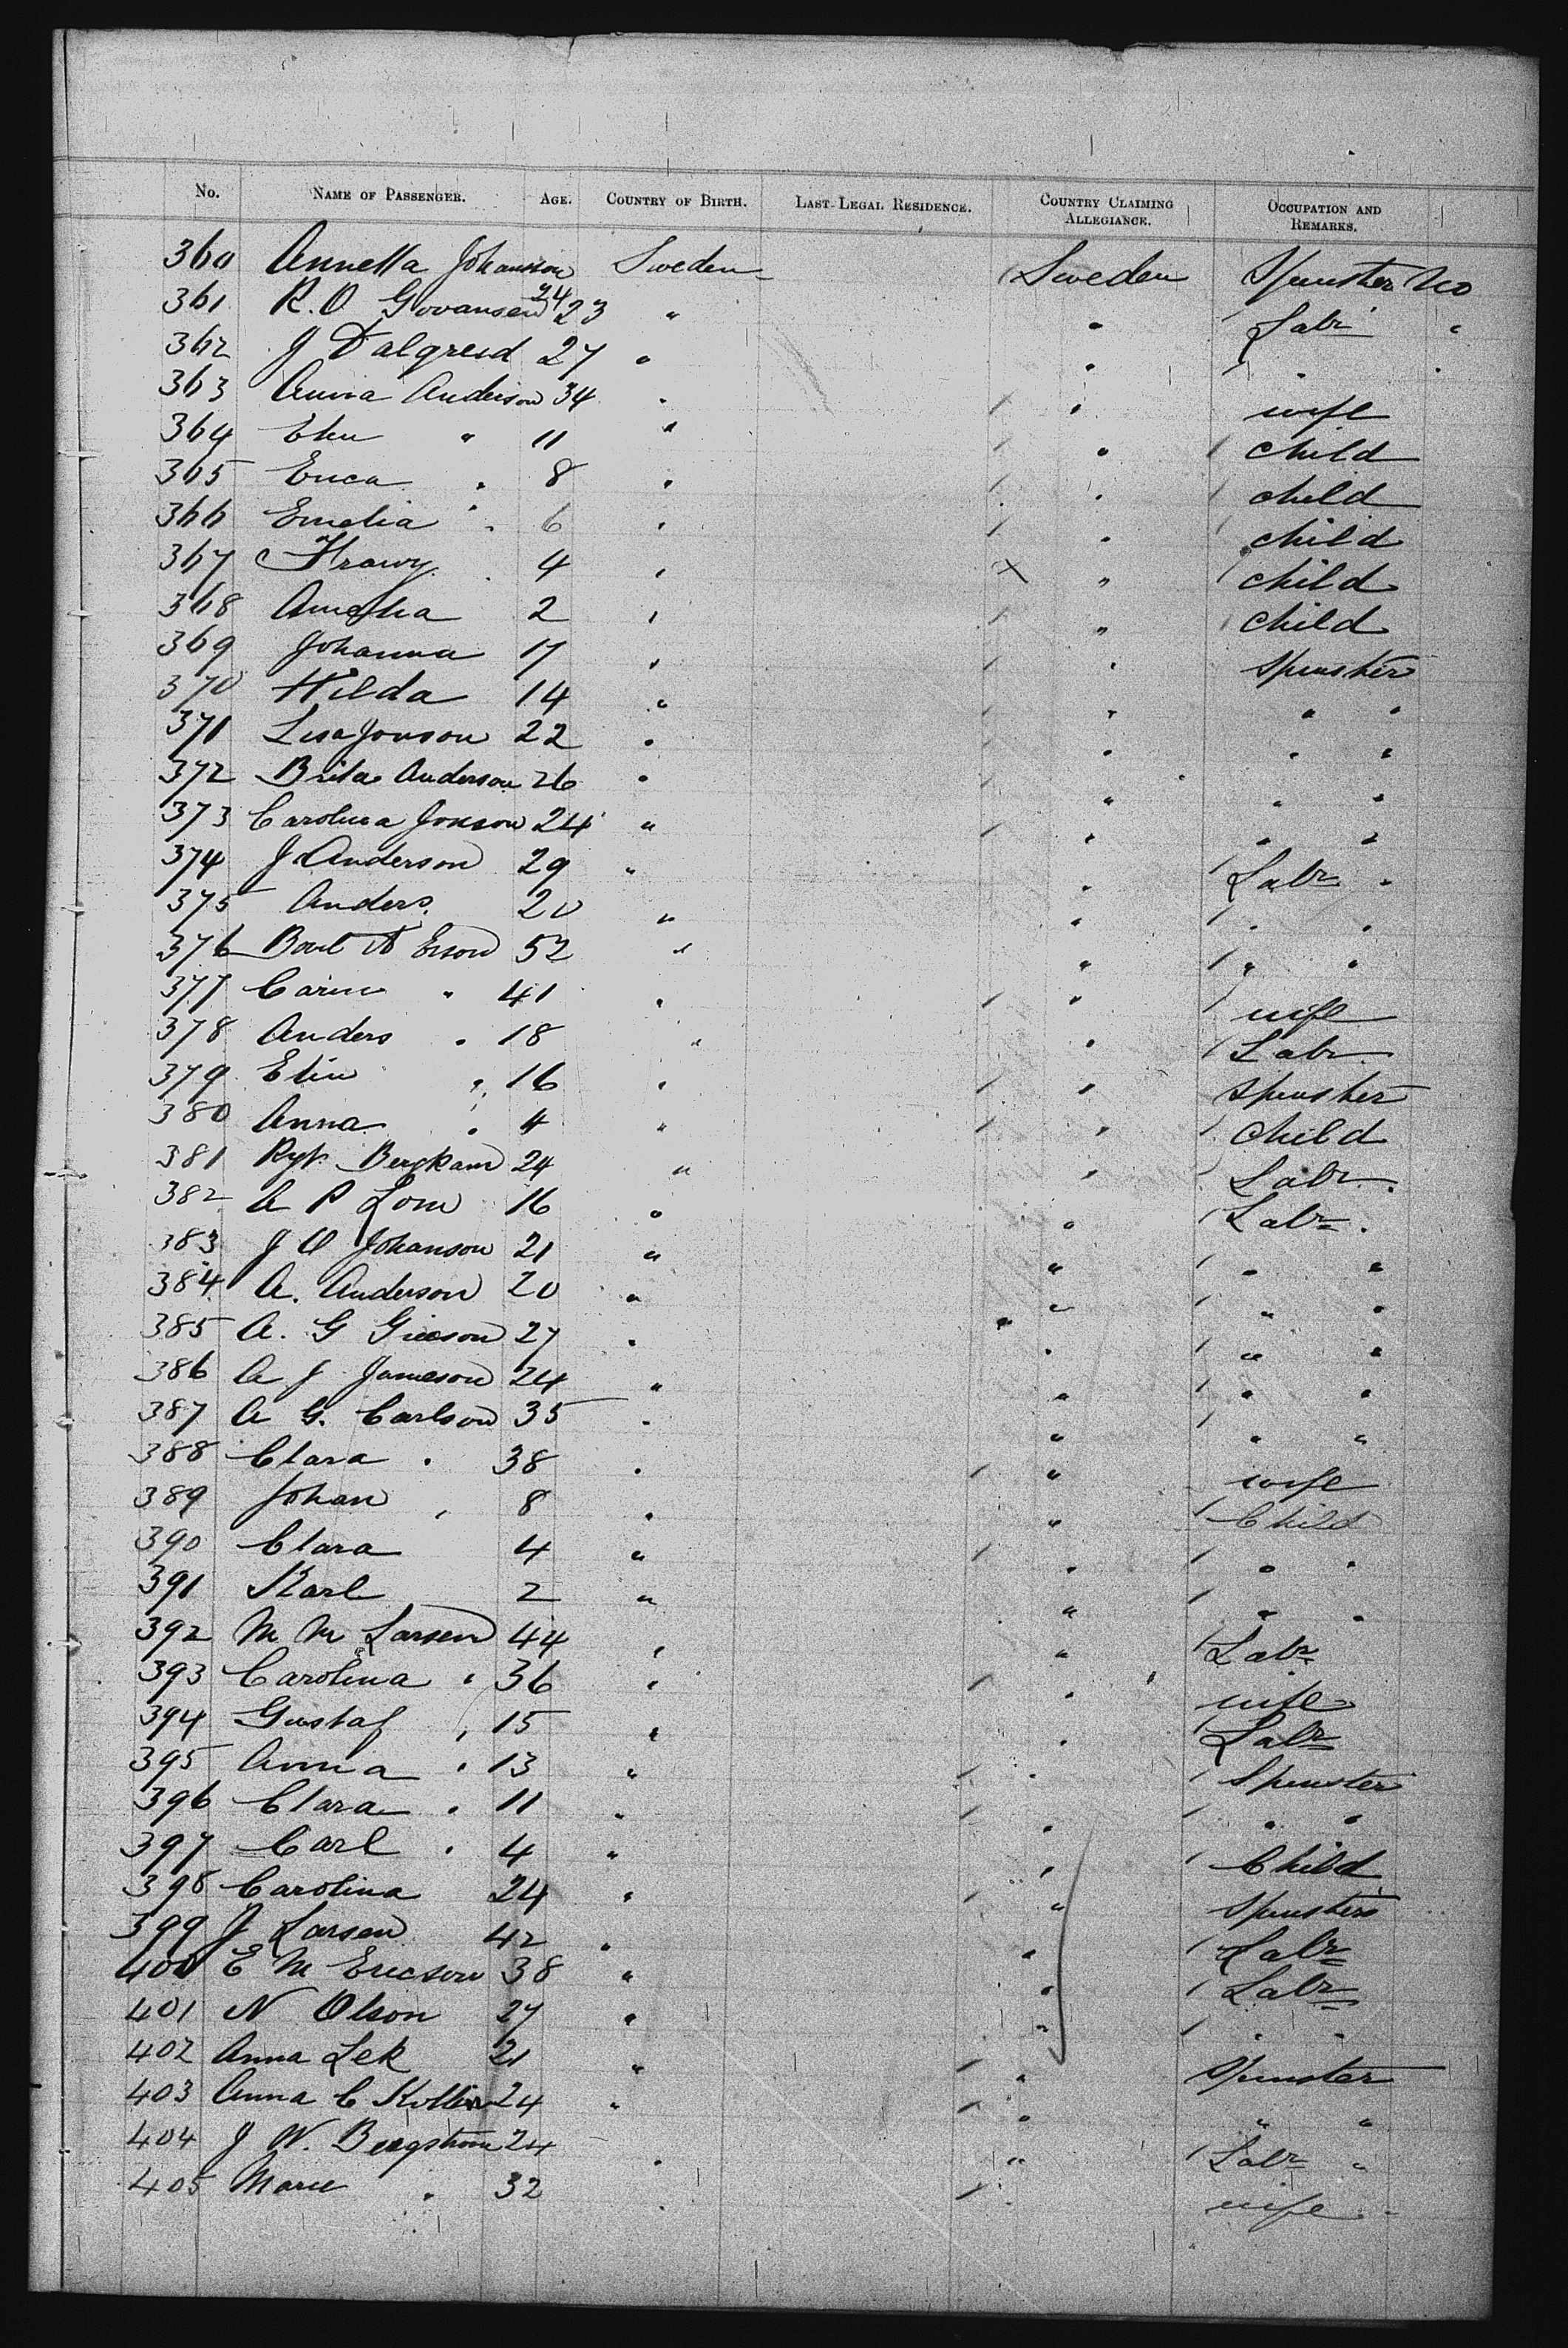 No. NAME OF PASSENGER. AGE. COUNTRY OF BIRTH. LAST LEGAL RESIDENCE. COUNTRY CLAIMING ALLEGIANCE. OCCUPATION AND REMARKS.
360 Annetta Johanson 24 Sweden Sweden Spinster no
361 R. O Govansen 23 " " Labr "
362 J Dalgreud 27 " " " "
363 Anna Anderson 34 " " wife
364 " 11 " " child
365 Erica " 8 " " child
366 Emelia " 6 " " child
367 4 " " child
368 Amelia 2 " " child
369 Johanna 17 " " Spinster
370 Hilda 14 " " " "
371 Lisa Jonson 22 " " " "
372 Brita Anderson 26 " " " "
373 Carolina Jonson 24 " " " "
374 J Anderson 29 " " Labr "
375 Anders 20 " " " "
376 Erson 52 " " " "
377 Carin " 41 " " wife
378 Anders " 18 " " Labr
379 Elin " 16 " " Spinster
380 Anna " 4 " " child
381 24 " " Labr "
382 A P Lom 16 " " Labr "
383 J O Johanson 21 " " " "
384 A. Anderson 20 " " " "
385 A. G 27 " " " "
386 A J Jameson 24 " " " "
387 A G. Carlson 35 " " " "
388 Clara " 38 " " wife
389 Johan " 8 " " Child
390 Clara 4 " " " "
391 Karl 2 " " " "
392 M M Larsen 44 " " Labr
393 Carolina " 36 " " wife
394 Gustaf " 15 " " Labr
395 Anna " 13 " " Spinster
396 Clara " 11 " " " "
397 Carl " 4 " " Child
398 Carolina 24 " " Spinster
399 J Larsen 42 " " Labr
400 E M Ericson 38 " " Labr
401 N Olson 27 " " " "
402 Anna Lek 21 " " Spinster
403 Anna C 24 " " " "
404 J W. Bergstrom 24 " " Labr "
405 Marie " 32 " " wife "